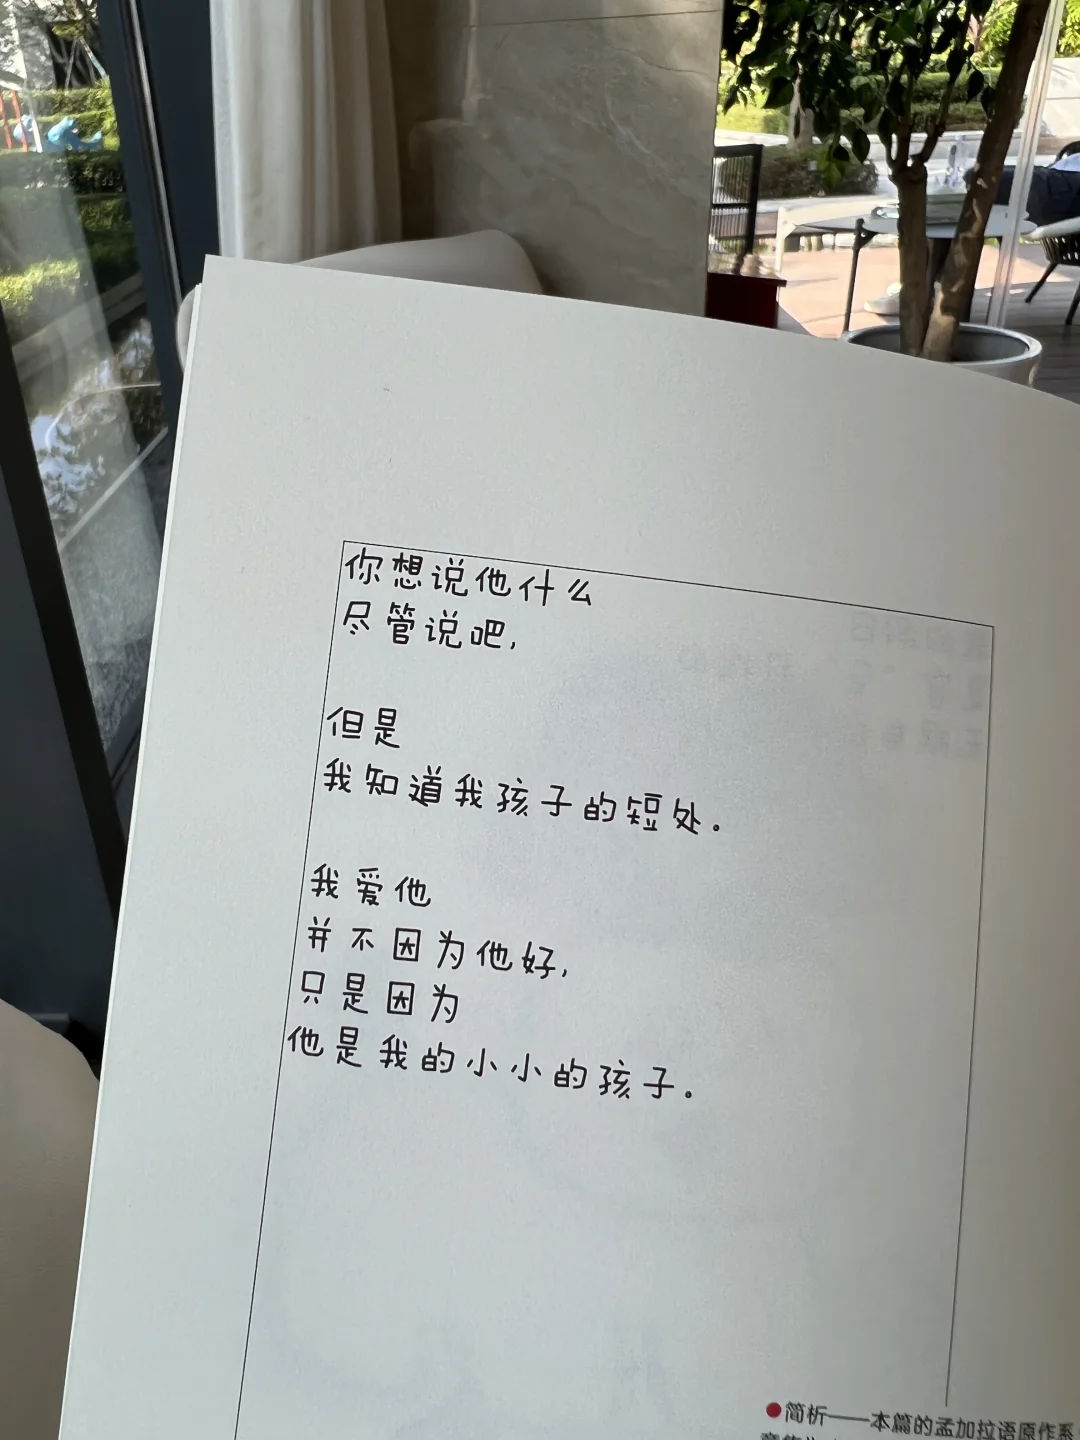 你想说他什么
尽管说吧,
但是
我知道我孩子的短处。
我爱他
并不因为他好,
只是因为
他是我的小小的孩子。
●简析——本篇的孟加拉语原作系